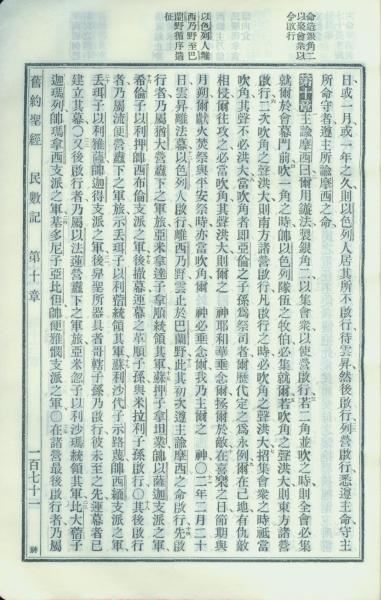 命造銀角二
以集會衆以
令啟行
以色列人離
西乃野至巴
蘭野循序遄
征
日或一月或一年之久則以色列人居其所不啟行待雲昇然後啟行列營啟行悉遵主命守主
所命守者遵主所諭摩西之命
第十章 主諭摩西曰爾用鎚法製銀角二以集會衆以使營啟行若二角並吹之時則全會必集
就爾於會幕門前吹一角之時帥以色列隊伍之牧伯必集就爾若吹角之聲洪大則東方諸營
啟行二次吹角之聲洪大則南方諸營啟行凡啟行之時必吹角之聲洪大招集會衆之時祗當
吹角其聲不必洪大當吹角者即亞倫之子孫為祭司者爾歷代定之為永例爾在己地有仇敵
相侵爾往攻之必當吹角其聲洪大則爾之 神耶和華垂念爾拯爾於敵在喜樂之日節期與
月朔爾獻火焚祭與平安祭時亦當吹角爾 神必垂念爾我乃主爾之 神〇二年二月二十
日雲昇離法幕以色列人啟行離西乃野雲止於巴蘭野此其初次遵主諭摩西之命啟行先啟
行者乃屬猶大營纛下之軍旅亞米拿達子拿順統領其軍蘇押子拿坦業帥以薩迦支派之軍
希倫子以利押帥西布倫支派之軍後撤幕運幕之革順子孫與米拉利子孫啟行〇其後啟行
者乃屬流便營纛下之軍旅示丟珥子以利蓿統領其軍蘇利沙代子示路蔑帥西緬支派之軍
丟珥子以利雅薩帥迦得支派之軍後舁聖所器具者哥轄子孫乃啟行彼未至之先運幕者已
建立其幕〇又後啟行者乃屬以法蓮營纛下之軍旅亞米忽子以利沙瑪統領其軍比大蓿子
迦瑪列帥瑪拿西支派之軍基多尼子亞比但帥便雅憫支派之軍〇在諸營最後啟行者乃屬
舊約聖經 民數記 第十章 一百七十一